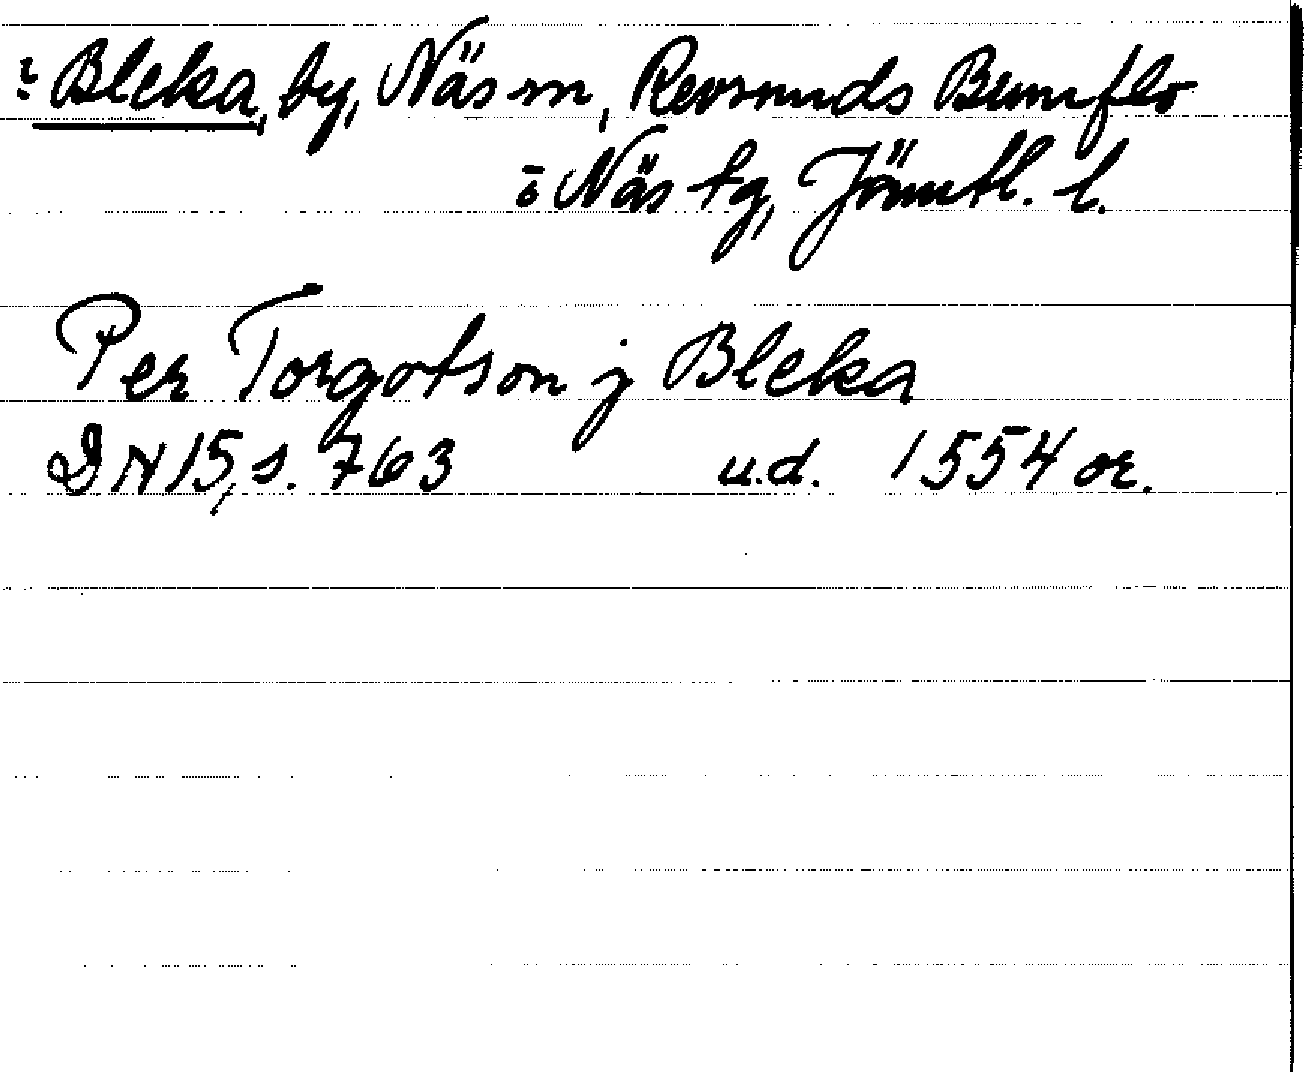 : Bleka, by, Näs sn, Revsunds Brunflo
o Näs tg, Jämtl. l.
Per Torgotson j Bleka
DN 15, s. 763 u.d. 1554 or.